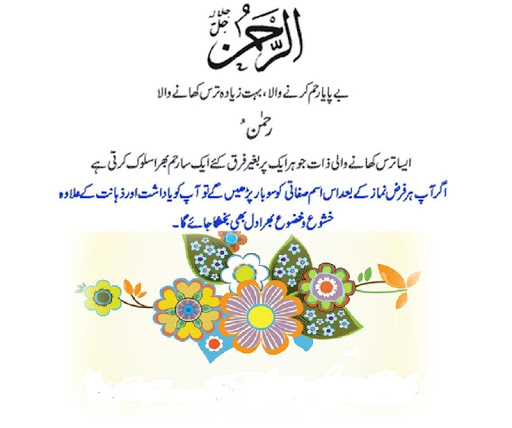 الرَّحْمٰنُ جل جلالہ
بے پایا رحم کرنے والا، بہت زیادہ ترس کھانے والا
رحمٰن
ایسا ترس کھانے والی ذات جو ہر ایک پر بغیر فرق کئے ایک سا رحم بھرا سلوک کرتی ہے
اگر آپ ہر فرض نماز کے بعد اس اسم صفاتی کو سو بار پڑھیں گے تو آپ کو یاداشت اور ذہانت کے علاوہ
خشوع و خضوع بھرا دل بھی بخشا جائے گا۔